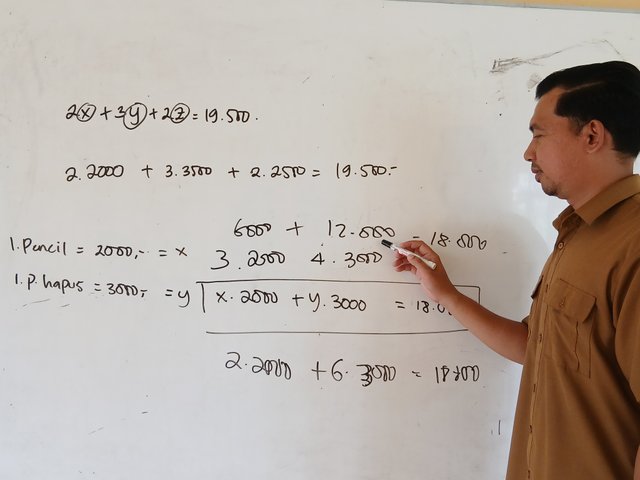 2x + 3y + 2z = 19.500.
2.2000 + 3.3500 + 2.2500 = 19.500.-
6000 + 12.000 = 18.000
1. Pencil = 2000,- = x 3.2000 4.3000
1. P. hapus = 3000,- = y x.2000 + y.3000 = 18.0
2.2000 + 6.3000 =